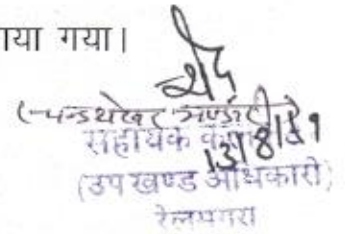 ाया गया।
(चन्द्रशेखर भण्डारी)
सहायक
13/8/19
(उपखण्ड अधिकारी)
रेलमगरा